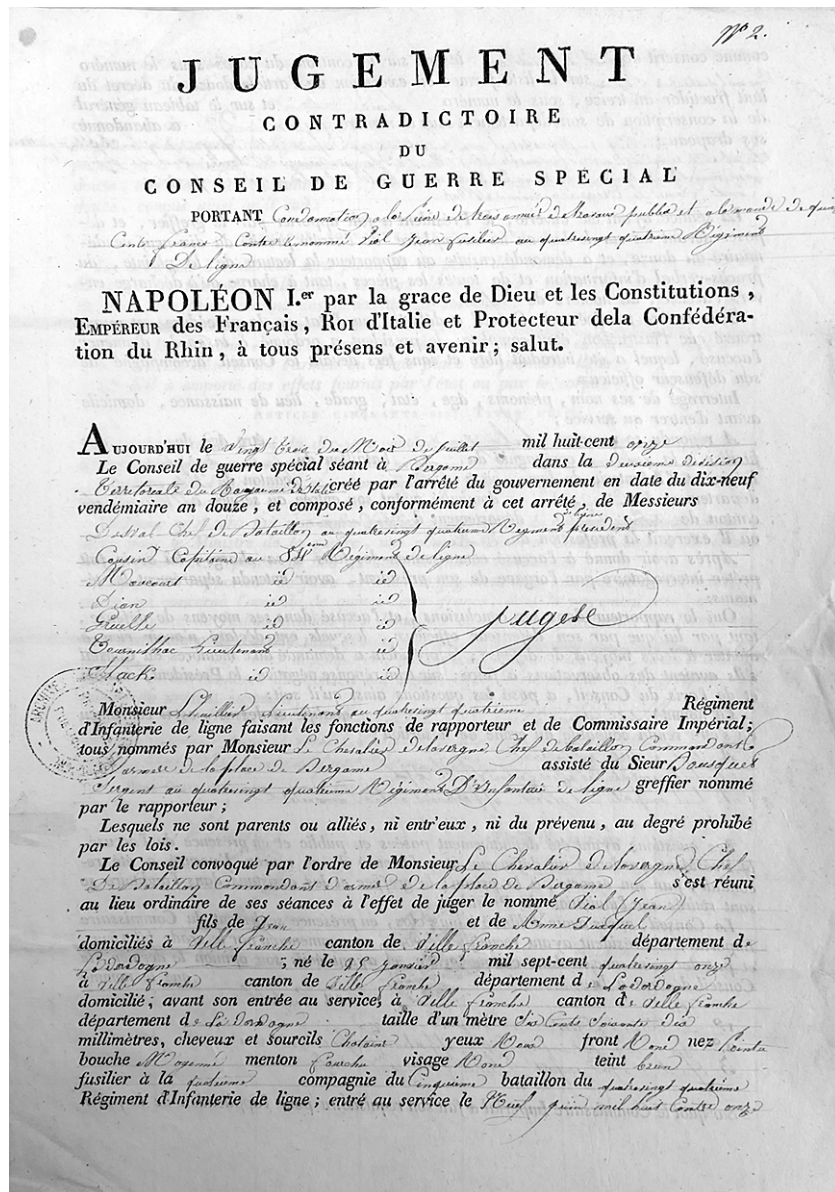 Nº 2.
JUGEMENT
CONTRADICTOIRE
DU
CONSEIL DE GUERRE SPÉCIAL
PORTANT Condamnation a la peine de trois années de travaux publics et a l'amende de quinze
Cents francs Contre le nommé Jean fusilier au quatresingt quatrième Régiment
De ligne
NAPOLÉON I.er par la grace de Dieu et les Constitutions,
EMPÉREUR des Français, Roi d'Italie et Protecteur dela Confédéra-
tion du Rhin, à tous présens et avenir; salut.
AUJOURD'HUI le vingt trois du Mois de Juillet mil huit-cent onze
Le Conseil de guerre spécial séant à Bergame dans la deuxieme division
Territoriale du Royaume d'Italie créé par l'arrêté du gouvernement en date du dix-neuf
vendémiaire an douze, et composé, conformément à cet arrêté, de Messieurs
Chef de Bataillon au quatresingt quatrieme Regiment de ligne president
Cousin Capitaine au 84eme Régiment de ligne
Marcourt id id
Dian id id
Gruelle id id Juges
Tournilhac Lieutenant id
id id
Monsieur Lieutenant au quatresingt quatrième Régiment
d'Infanterie de ligne faisant les fonctions de rapporteur et de Commissaire Impérial;
tous nommés par Monsieur Le Chevalier delavergne Chef de bataillon Commandant
d'armes de la place de Bergame assisté du Sieur Bousquet
Sergent au quatresingt quatrieme Régiment D'Infanterie de ligne greffier nommé
par le rapporteur;
Lesquels ne sont parents ou alliés, ni entr'eux, ni du prévenu, au degré prohibé
par les lois.
Le Conseil convoqué par l'ordre de Monsieur Le Chevalier delavergne Chef
De Bataillon Commandant d'armes de la place de Bergame s'est réuni
au lieu ordinaire de ses séances à l'effet de juger le nommé (Jean)
fils de Jean et de Anne
domiciliés à Ville franche canton de Ville franche département de
La dordogne; né le 25 Janvier mil sept-cent quatresingt onze
à Ville franche canton de Ville franche département de La dordogne
domicilié, avant son entrée au service, à Ville franche canton de Ville franche
département de La dordogne taille d'un mètre Six Cents Soixante Dix
millimètres, cheveux et sourcils Chatains yeux Roux front Rond nez Pointu
bouche Moyenne menton fourchu visage Rond teint brun
fusilier à la quatrieme compagnie du Cinquieme bataillon du quatresingt quatrieme
Régiment d'Infanterie de ligne; entré au service le Neuf Juin mil huit Cent onze